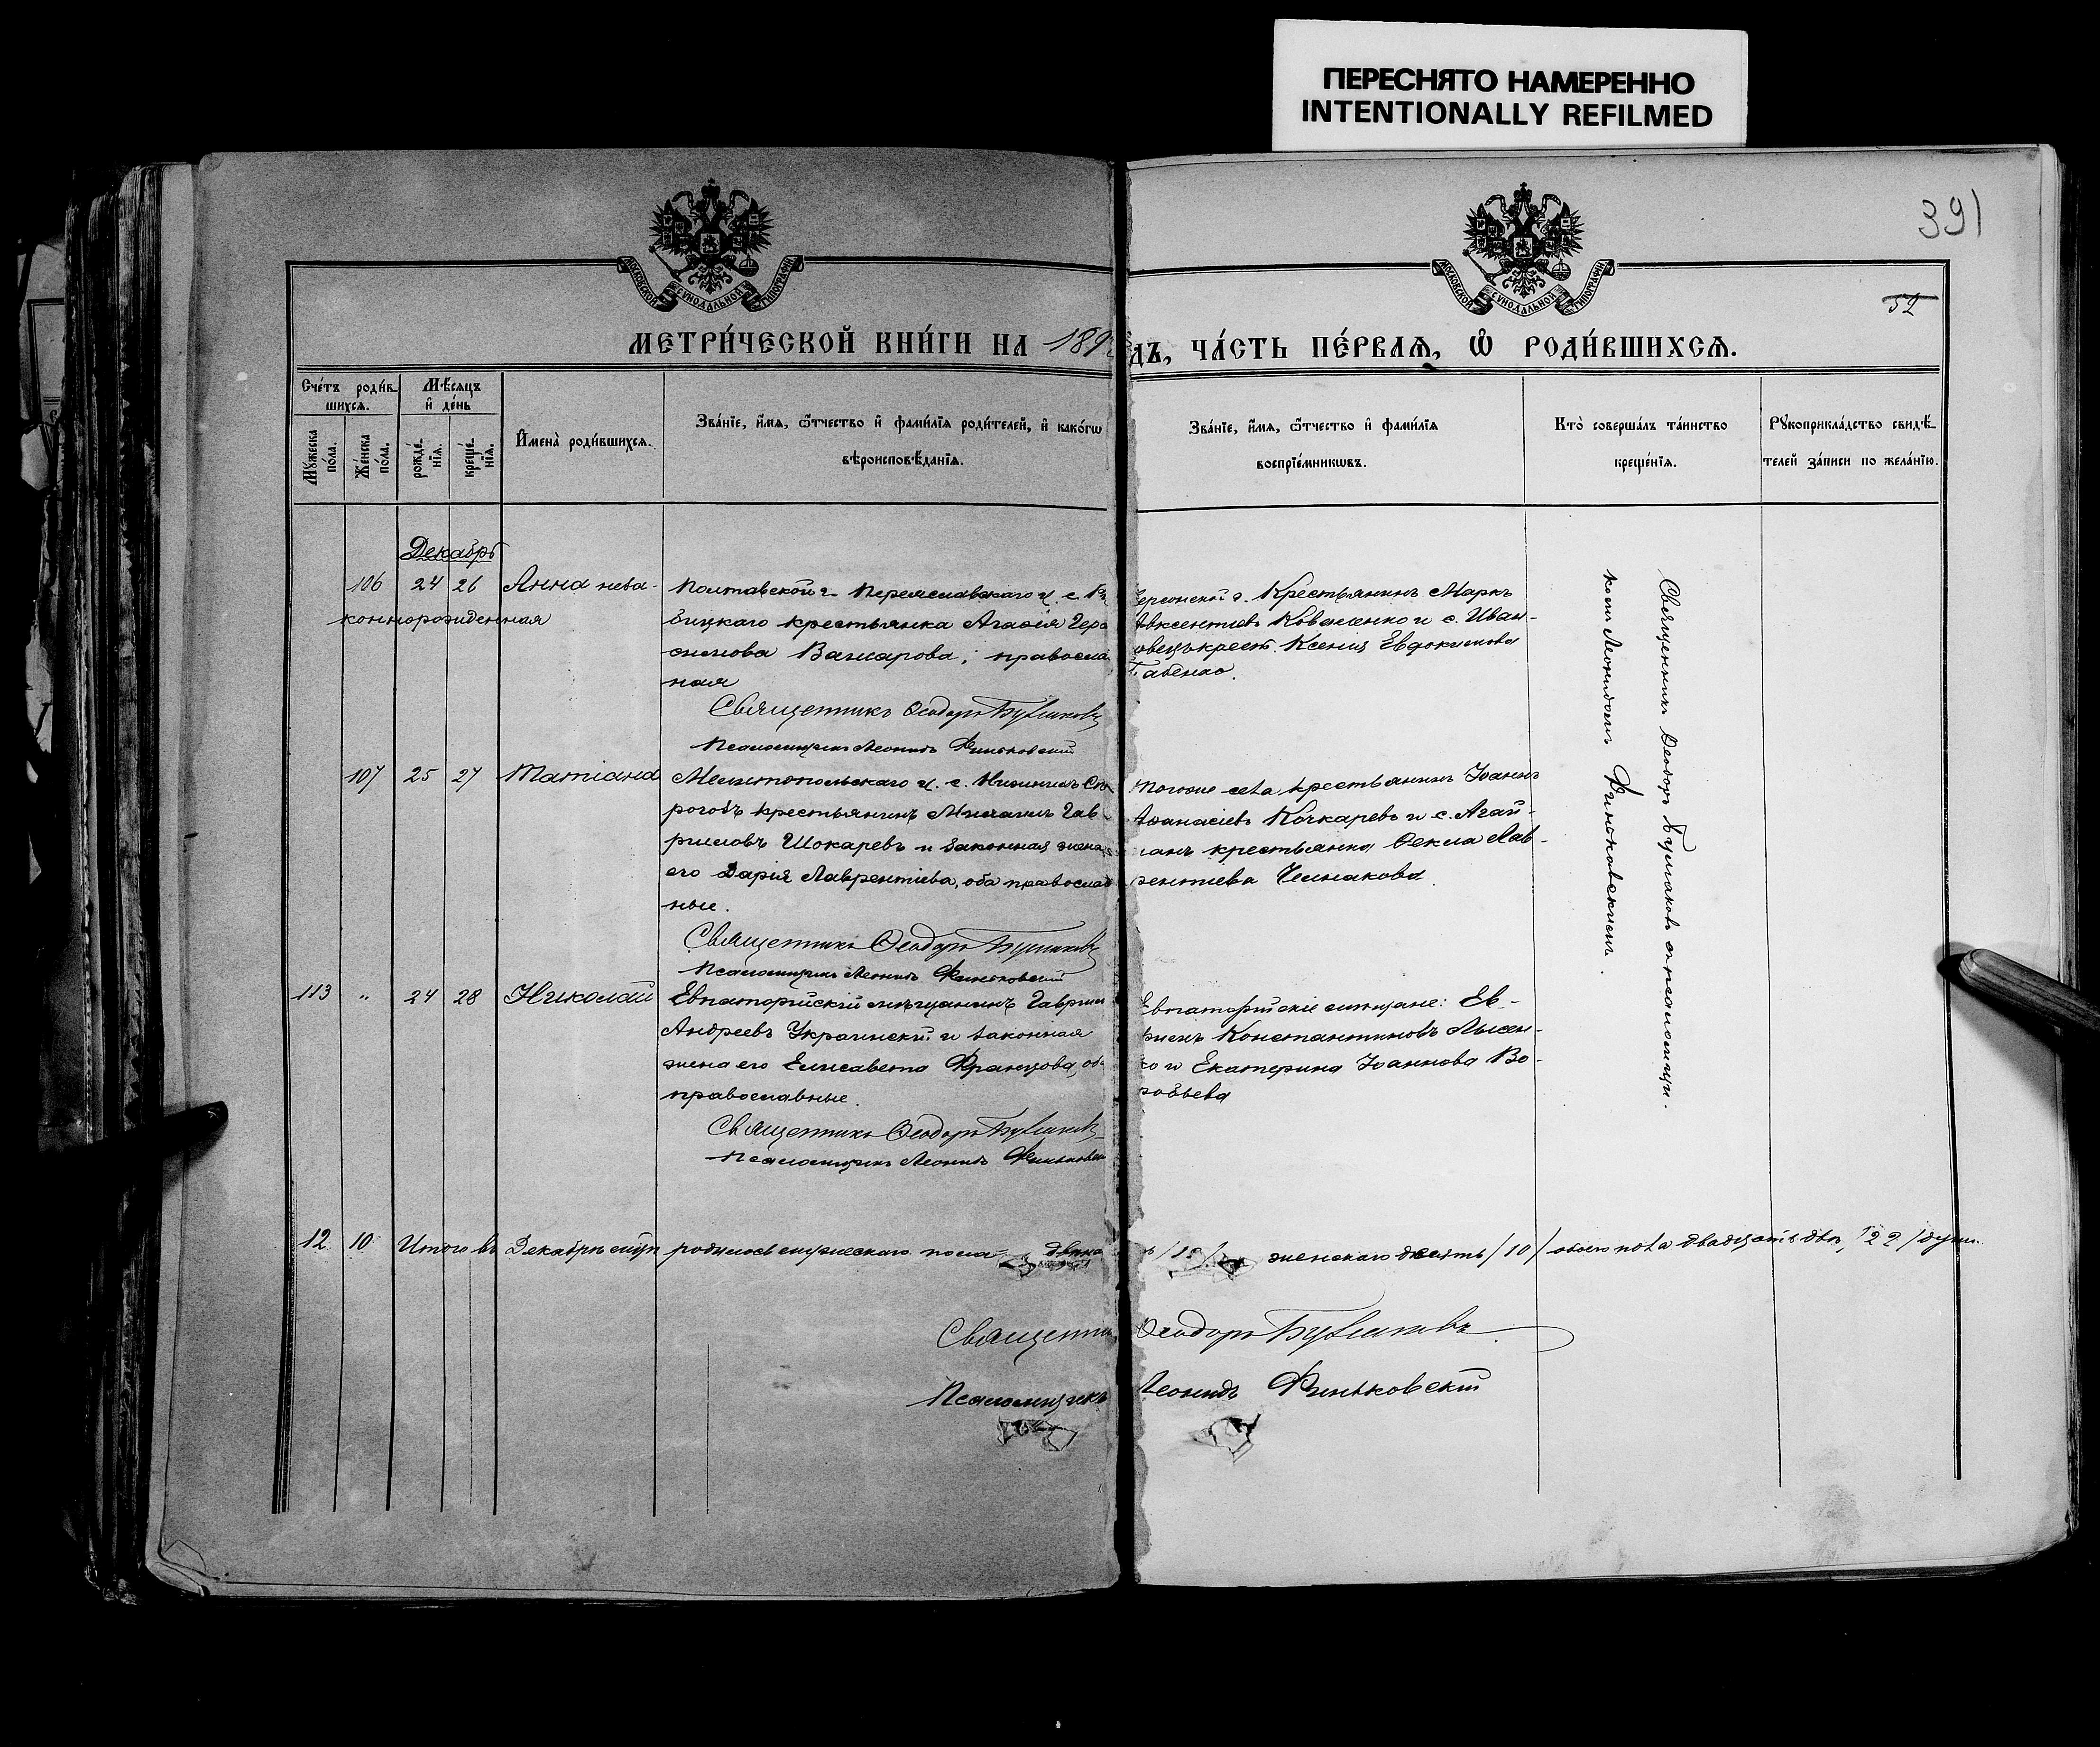 ПЕРЕСНЯТО НАМЕРЕННО
INTENTIONALLY REFILMED
391
52
МОСКОВСКОЙ СѴНОДАЛЬНОЙ ТИПОГРАФІИ
МОСКОВСКОЙ СѴНОДАЛЬНОЙ ТИПОГРАФІИ
МЕТРИ́ЧЕСКОЙ КНИ́ГИ НА 189
дъ, ЧА́СТЬ ПЕ́РВАЯ, Ѡ҆ РОДИ́ВШИХСЯ.
Сче́тъ роди́в-
шихся.
Мѣ́сяцъ
и҆ де́нь
Мꙋ́жеска по́ла.
Же́нска по́ла.
рожде́нїя.
креще́нїя.
И҆мена̀ роди́вшихся.
Зва́нїе, и҆́мя, ѻ҆́тчество и҆ фами́лїя роди́телей, и҆ како́гѡ
вѣроисповѣ́данїя.
Зва́нїе, и҆́мя, ѻ҆́тчество и҆ фами́лїя
воспрїе́мникѡвъ.
Кто̀ соверша́лъ та́инство
креще́нїя.
Рꙋкоприкла́дство свидѣ́-
телей за́писи по жела́нїю.
Декабрь
106 24 26 Анна неза-
коннорожденная
Полтавской г. Переяславскаго у. с.
бицкаго крестьянка Агафія Гера
симова Важарова, православ
ная
Священникъ Ѳеодоръ Бушаковъ
Псаломщикъ Леонидъ Финьковскій
ерсонской г. Крестьянинъ Маркъ
Авксентіевъ Коваленко и с. Иван-
овецъ крест. Ксенія Евдокимова
Габенко.
107 25 27 Татіана
Мелитопольскаго у. с. Нижнихъ Сѣ
рогозъ крестьянинъ Михаилъ Гав
риловъ Шокаревъ и законная жена
его Дарія Лаврентіева, оба православ
ные.
Священникъ Ѳеодоръ Бушаковъ
Псаломщикъ Леонидъ Финьковскій
Тогоже села крестьянинъ Іоаннъ
Аѳанасіевъ Кочкаревъ и с. Агай-
манъ крестьянка Ѳекла Лав-
рентіева Челнакова.
113 " 24 28 Николай
Евпаторійскій мѣщанинъ Гавріил
Андреевъ Украинскій и законная
жена его Елисавета Францова, об
православные.
Священникъ Ѳеодоръ Бушаковъ
Псаломщикъ Леонидъ Финьковскій
Евпаторійскіе мѣщане: Ев-
фиелъ Константиновъ Лысен-
ко и Екатерина Іоаннова Во-
робьева
Священникъ Ѳеодоръ Бушаковъ съ псаломщи-
комъ Леонидомъ Финьковскимъ.
12 10 Итого въ Декабрѣ мцѣ родилось мужескаго пола двѣна
/12/ женскаго десять /10/ обоего пола двадцать двѣ /22/ души.
Священни
Ѳеодоръ Бушаковъ
Псаломщикъ
Леонидъ Финьковскій